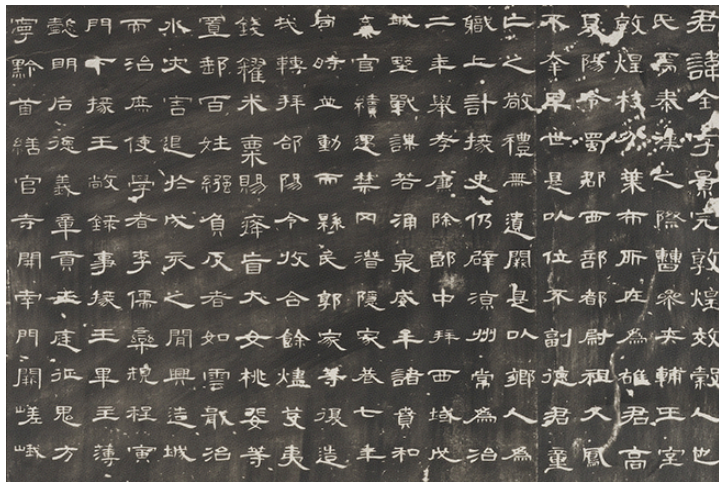 君諱全字景完敦煌效穀人也
氏焉秦漢之際曹參夾輔王室
敦煌枝分葉布所在為雄君高
夏陽令蜀郡西部都尉祖父鳳
不幸早世是以位不副德君童
亡之敬禮無遺闕是以鄉人為
職上計掾史仍辟涼州常為治
二年舉孝廉除郎中拜西域戊
城野戰謀若涌泉威牟諸賁和
棄官續遇禁冈潛隱家巷七年
同時並動而縣民郭家等復造
哉轉拜郃陽令收合餘燼芟夷
錢糴米粟賜癃盲大女桃婓等
置郵百姓繦負反者如雲戢治
水灾害退於戌亥之間興造城
而治庶使學者李儒欒規程寅
門下掾王敞錄事掾王畢主薄
懿明后德義章貢王庭征鬼方
寧黔首繕官寺開南門闕嵯峨